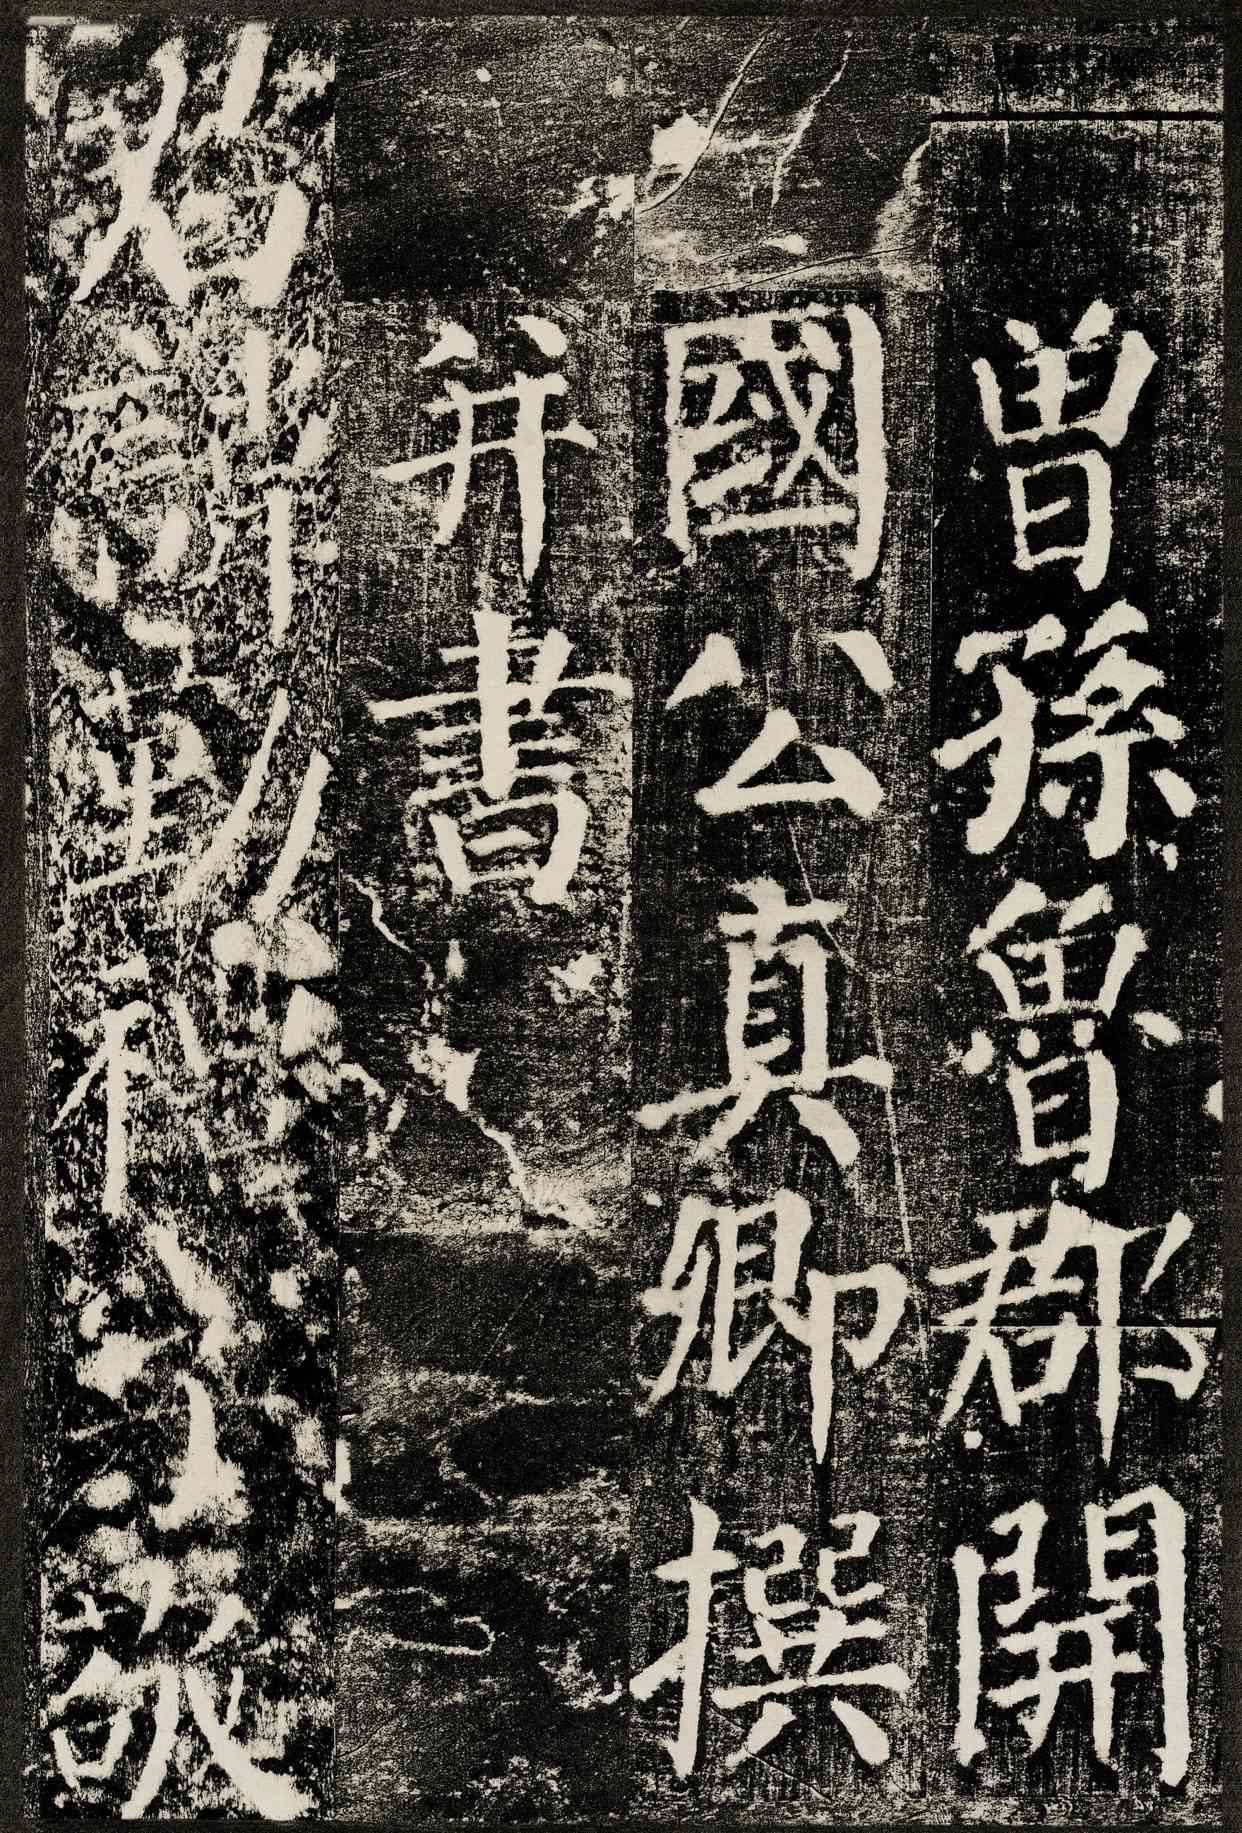 曾孫魯郡開
國公真卿撰
并書
諱勤禮敬